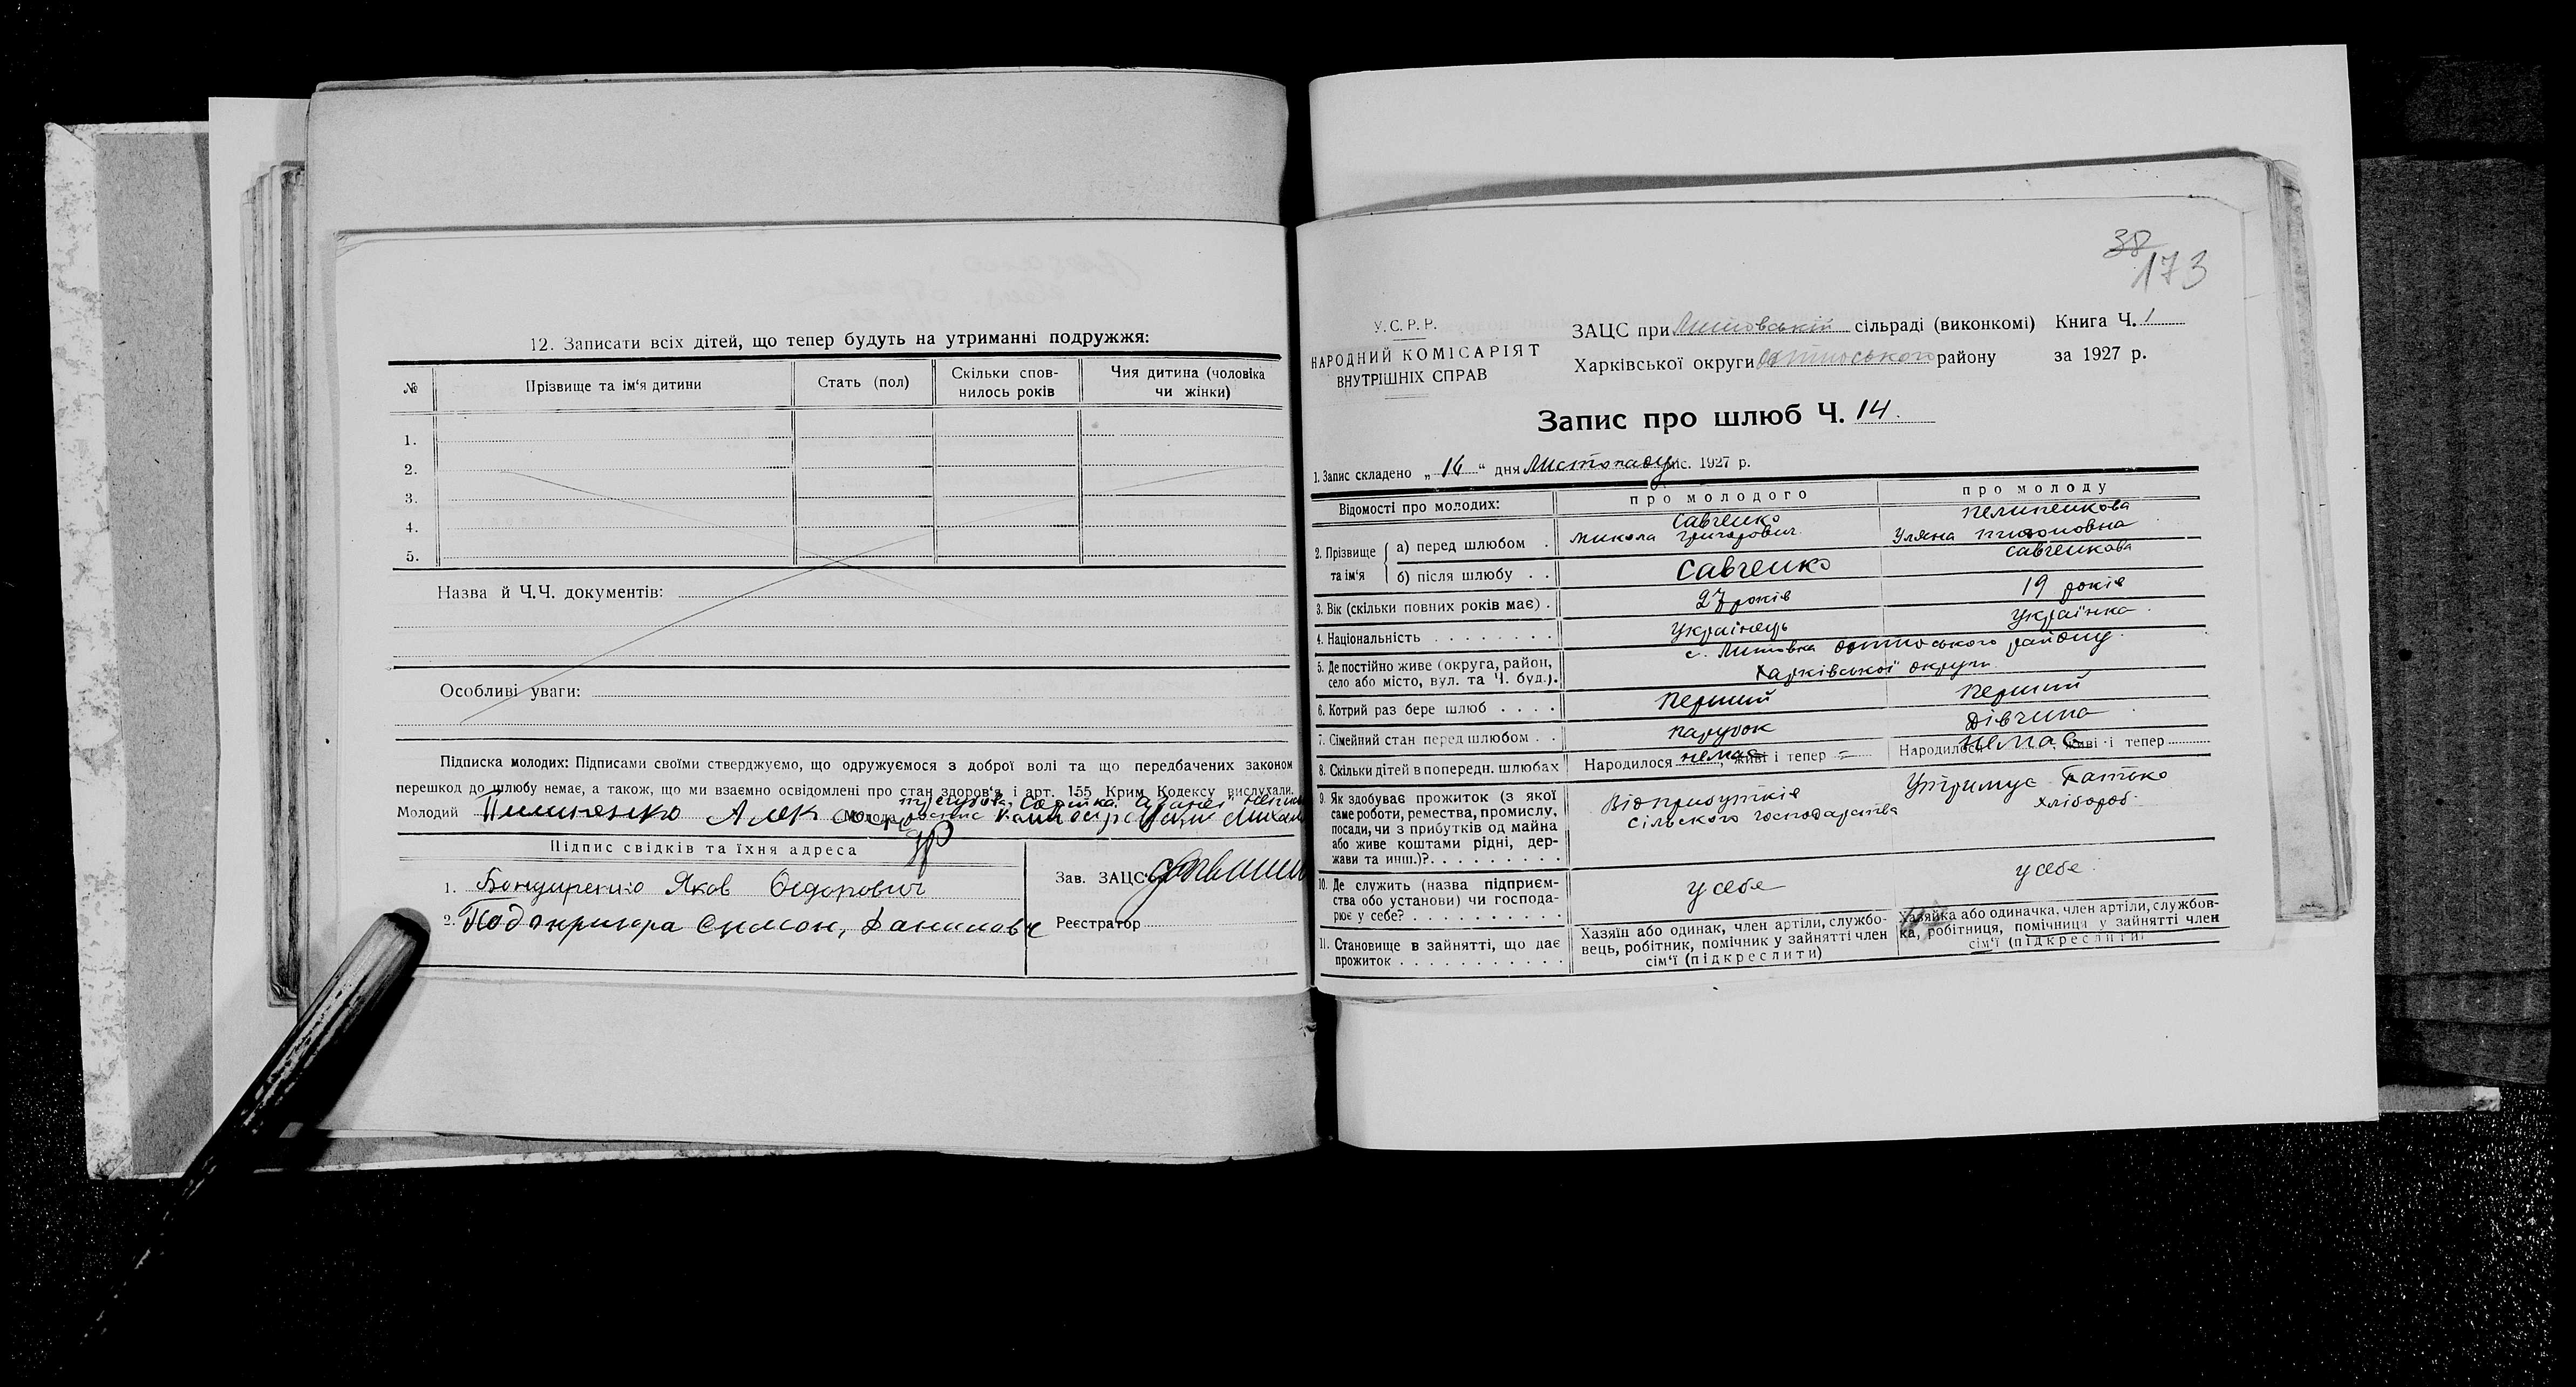 12. Записати всіх дітей, що тепер будуть на утриманні подружжя:
№ Прізвище та ім‘я дитини Стать (пол) Скільки спов-нилось років Чия дитина (чоловіка чи жінки)
1.
2.
3.
4.
5.
Назва й Ч.Ч. документів:
Особливі уваги:
Підписка молодих: Підписами своїми стверджуємо, що одружуємося з доброї волі та що передбачених законом
перешкод до шлюбу немає, а також, що ми взаємно освідомлені про стан здоров‘я і арт. 155 Крим Кодексу вислухали.
Молодий Пилипенко Александр Молода
Підпис свідків та їхня адреса
1. Бондаренко Яков Федорович
2. Подопригора Семон, Данилович
Зав. ЗАЦС‘у
Реєстратор
38
173
У.С.Р.Р.
НАРОДНИЙ КОМІСАРІЯТ
ВНУТРІШНІХ СПРАВ
ЗАЦС при Лютовській сільраді (виконкомі) Книга Ч. 1
Харківської округи району за 1927 р.
Запис про шлюб Ч. 14.
1. Запис складено „ 16 “ дня Листопаду міс. 1927 р.
Відомості про молодих: про молодого про молоду
2. Прізвище та ім‘я
а) перед шлюбом . Савченко Микола Григорович Пелипенкова Уляна
б) після шлюбу . . Савченко Савченкова
3. Вік (скільки повних років має) . 27 років 19 років
4. Національність . . . . . . . . Українець Українка
5. Де постійно живе (округа, район, село або місто, вул. та Ч. буд.). с. Лютовка району Харківської округи
6. Котрий раз бере шлюб . . . . Перший Перший
7. Сімейний стан перед шлюбом . . Парубок Дівчина
8. Скільки дітей в попередн. шлюбах Народилося немає, живі і тепер = Народилося немає, живі і тепер
9. Як здобуває прожиток (з якої саме роботи, ремества, промислу, посади, чи з прибутків од майна або живе коштами рідні, дер-жави та инш.)?. . . . . . . . . Від прибутків сільского господарства Утримує Батько хлібороб.
10. Де служить (назва підприєм-ства обо установи) чи господа-рює у себе? . . . . . . . . . . у себе у себе.
11. Становище в зайнятті, що дає прожиток . . . . . . . . . . . Хазяїн або одинак, член артіли, службо-вець, робітник, помічник у зайнятті член сім‘ї (підкреслити) Хазяйка або одиначка, член артіли, службов-ка, робітниця, помічниця у зайнятті член сім‘ї (підкреслити)